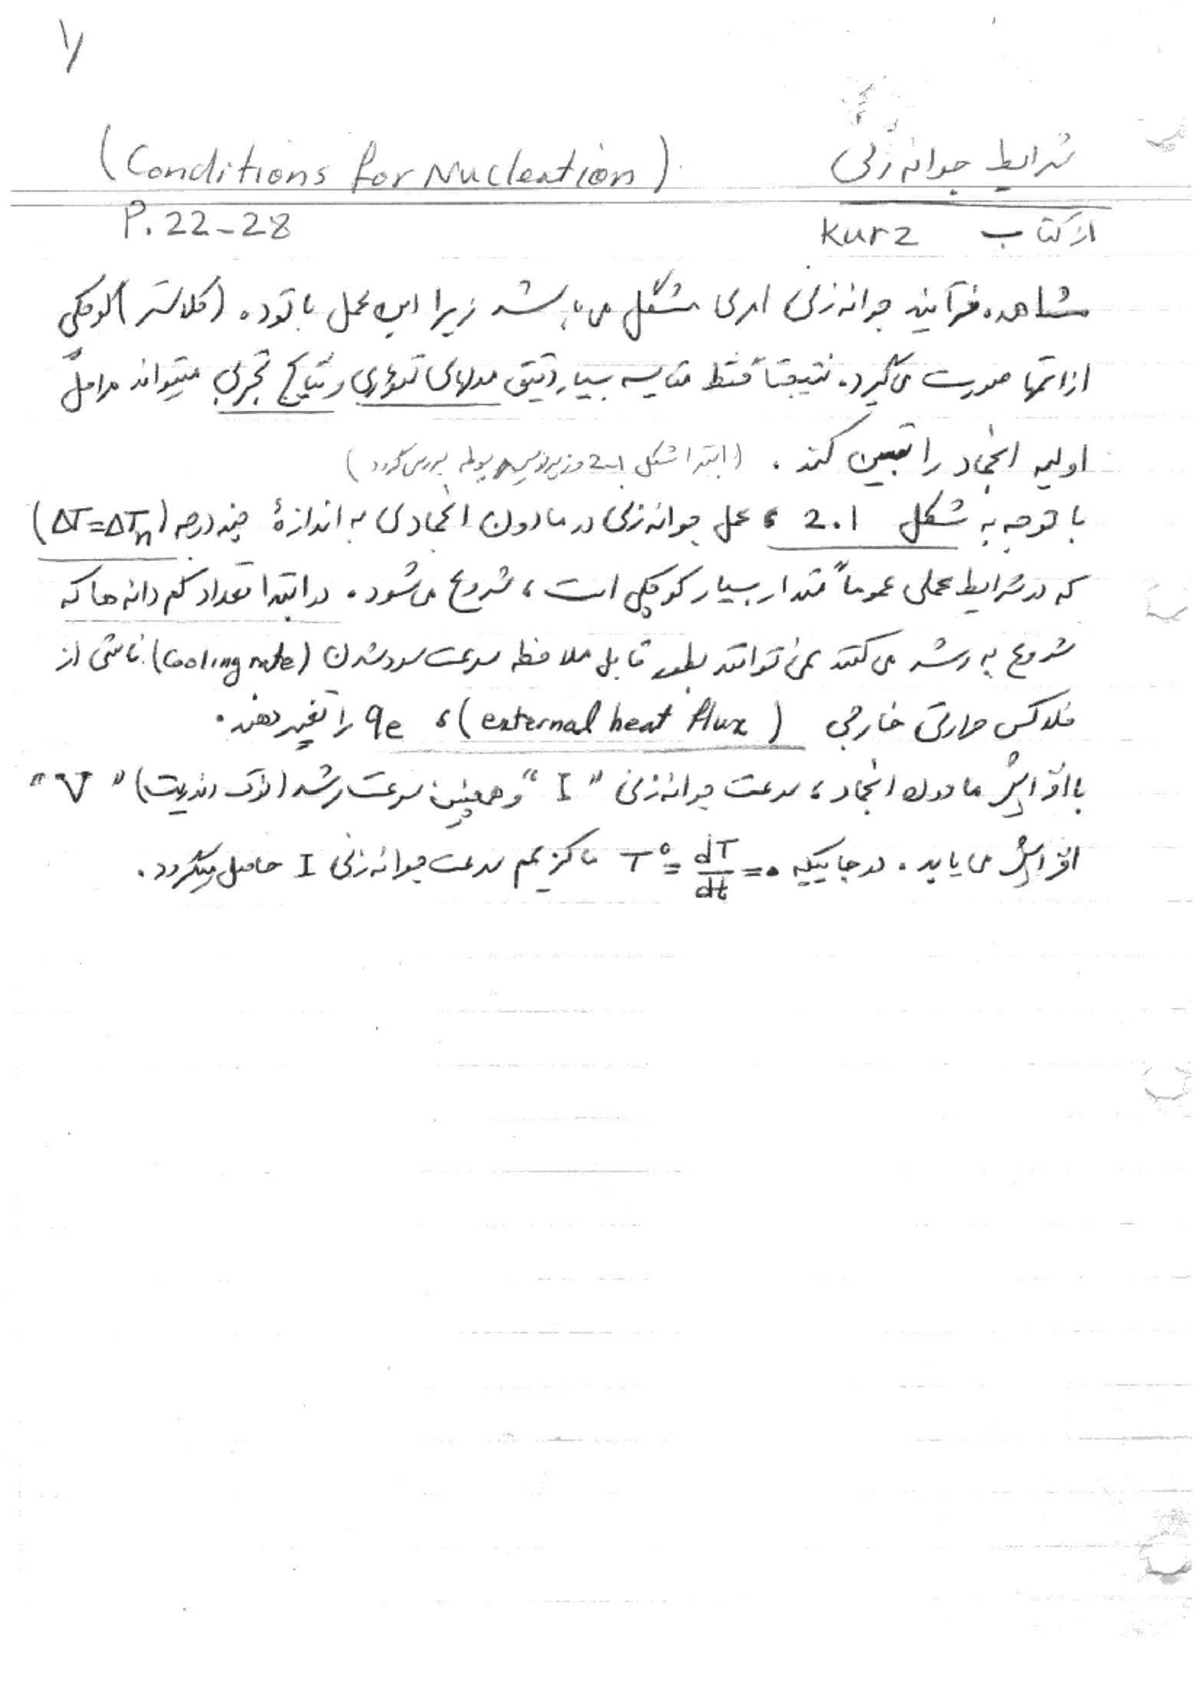 ۱/
شرایط جوانه زنی (Conditions for Nucleation)
از کتاب Kurz P. 22-28
مشاهده فرآیند جوانه زنی امری مشکل می باشد زیرا این عمل با توده (کلاستر) کوچکی
از اتمها صورت می گیرد. نتیجتاً فقط مقایسه بسیار دقیق مدلهای تئوری و نتایج تجربی میتواند مراحل
اولیه انجماد را تبیین کند. (ابتدا شکل 2.1 و زیرنویس مربوطه بررسی گردد)
با توجه به شکل 2.1 ، عمل جوانه زنی در مادون انجمادی به اندازهٔ چند درجه (ΔT=ΔTn)
که در شرایط عملی عموماً مقدار بسیار کوچکی است ، شروع می شود. در ابتدا تعداد کم دانه ها که
شروع به رشد می کنند نمی توانند بطور قابل ملاحظه سرعت سرد شدن (Cooling rate) ناشی از
فلاکس حرارتی خارجی (external heat flux) ، qe را تغییر دهند.
با افزایش مادون انجماد ، سرعت جوانه زنی "I" و همچنین سرعت رشد (نوک دندریت) "V"
افزایش می یابد. در جاییکه T° = dT/dt = ۰ ماکزیمم سرعت جوانه زنی I حاصل میگردد.